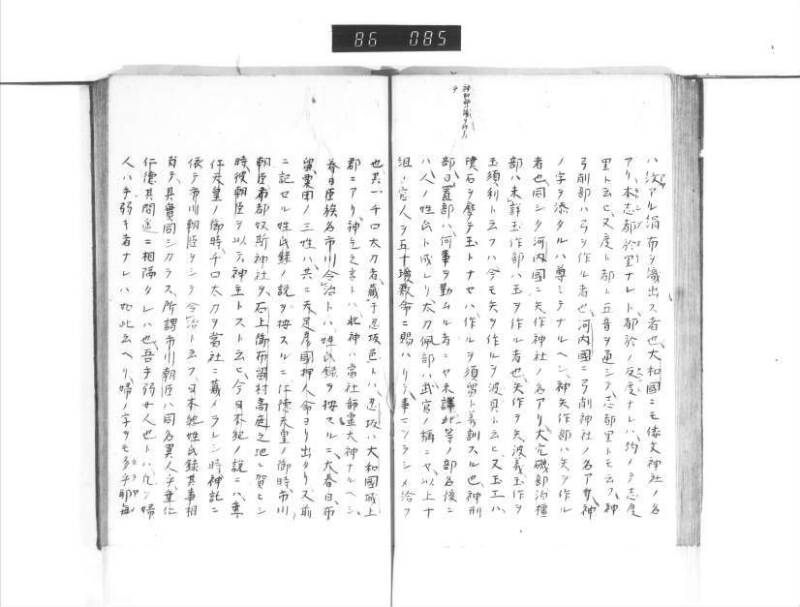 86 085
ハ汶アル絹布ヲ織出ス者也、大和國ニモ倭文神社ノ名
アリ、本志都於里ナレト、都於ノ反度ナレハ、約メテ志度
里ト云ヒ、又度ト都ト五音ヲ通シテ、志都里トモ云フ、神
弓削部ハ弓ヲ作ル者也、河内國ニ弓削神社ノ名アリ、神
ノ字ヲ添タルハ尊ミテナルヘシ、神矢作部ハ矢ヲ作ル
者也、同シク河内國ニ矢作神社ノ名アリ、大穴磯部泊橿
部ハ未詳、玉作部ハ玉ヲ作ル者也、矢作ヲ矢波義、玉作ヲ
玉須利ト云フハ、今モ矢ヲ作ルヲ波具ト云ヒ、又玉工ハ
礦石ヲ磨テ玉トナセハ、作ルヲ須留ト義訓スル也、神刑
部日置部ハ何事ヲ勤ムル者ニヤ未詳、此等ノ部名後ニ
ハ人ノ姓氏ト成レリ、太刀佩部ハ武官ノ稱ニヤ、以上十
組ノ官人ヲ五十瓊敷命ニ賜ハリテ、事ヲツラシメ給フ
也、其一千口太刀者、藏于忍坂邑トハ、忍坂ハ大和國城上
郡ニアリ、神乞之言トハ、此神ハ當社師靈大神ナルヘシ、
春日臣族名市川令治トハ、姓氏録ヲ按スルニ、大春日、布
留、粟田ノ三姓ハ、共ニ天足彦國押人命ヨリ出タリ、又前
ニ記セル姓氏録ノ説ヲ按スルニ、仁德天皇ノ御時、市川
朝臣布都奴斯神社ヲ、石上御布瑠村高庭之地ニ賀ヒシ
時、彼朝臣ヲ以テ神主トスト云ヒ、今日本紀ノ説ニハ、垂
仁天皇ノ御時、千口太刀ヲ當社ニ藏メラレシ時、神託ニ
依テ市川朝臣ヲシク令治ト云フ、日本紀姓氏録其事相
似テ、其實同シカラス、所謂市川朝臣ハ同名異人乎、垂仁
仁德其間遥ニ相隔タレハ也、吾手弱女人也トハ、凡ソ婦
人ハ手弱キ者ナレハ如此云ヘリ、婦ノ字ヲモ多乎耶毎